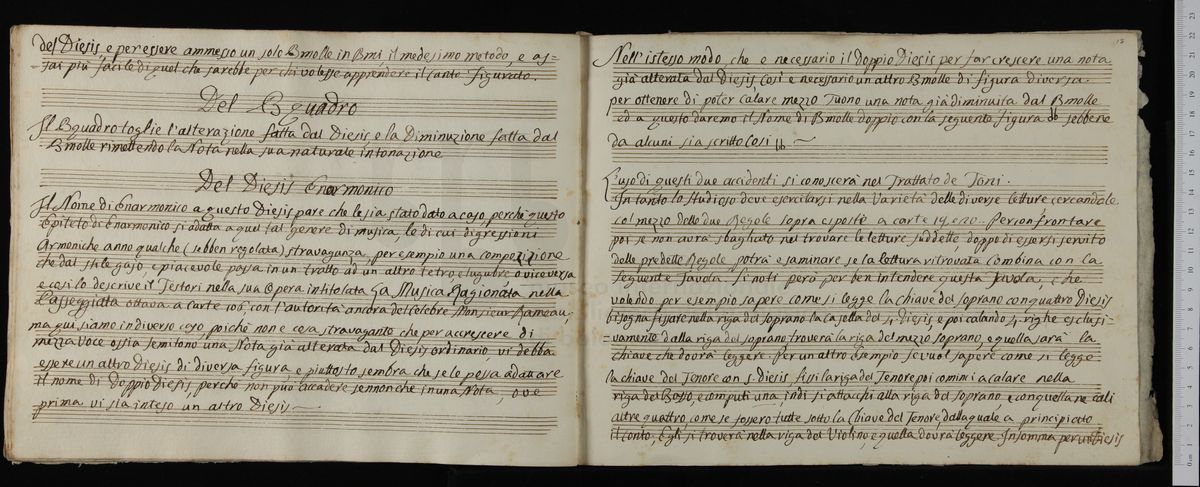 del Diesis, e per essere ammesso un solo Bmolle in Bmi il medesimo metodo, e as-
sai più facile di quel che sarebbe per chi volesse apprendere il Canto figurato.
Del Bquadro
Il Bquadro toglie l'alterazione fatta dal Diesis e la Diminuzione fatta dal
Bmolle rimettendo la Nota nella sua naturale intonazione
Del Diesis Enarmonico
Il Nome di Enarmonico a questo Diesis pare che le sia stato dato a caso, perche questo
Epiteto di Enarmonico si adatta a quel tal genere di musica, le di cui digressioni
Armoniche anno qualche (sebben regolata) stravaganza, per esempio una composizione
che dal stile gajo, e piacevole passa in un tratto ad un altro tetro e lugubre o viceversa
e cosi lo descrive il Testori nella sua Opera intitolata La Musica Ragionata nella
Passeggiata ottava a carte 106, con l'autorità ancora del celebre Monsieur Rameau,
ma qui siamo in diverso caso, poiché non e cosa stravagante che per accrescere di
mezza Voce ossia semitono una Nota già alterata dal Diesis ordinario vi debba
essere un altro Diesis di diversa figura e piuttosto sembra che se le possa adattare
il nome di Doppio Diesis, perche non può accadere sennonche in una Nota, ove
prima vi sia inteso un altro Diesis
Nell'istesso modo, che e necessario il doppio Diesis per far crescere una nota
già alterata dal Diesis, Cosi e necessario un altro Bmolle di figura diversa
per ottenere di poter Calare mezzo Tuono una nota già diminuita dal Bmolle
ed a questo daremo il Nome di Bmolle doppio con la seguente figura bb sebbene
da alcuni sia scritto Cosi
L'uso di questi due accidenti si conoscerà nel Trattato de Toni.
In tanto lo studioso deve esercitarsi nella Varietà delle diverse letture cercandole
col mezzo delle due Regole sopra esposte a carte 19. e 20. Per confrontare
poi se non avrà sbagliato nel trovare le letture suddette, doppo di essersi servito
delle predette Regole potrà esaminare se la lettura ritrovata Combina con la
seguente Tavola. Si noti però per ben intendere questa Tavola, che
volendo per esempio sapere come si legge la chiave del soprano con quattro Diesis
bisogna fissare nella riga del soprano la casella del 4 Diesis, e poi calando 4 righe esclusi-
vamente dalla riga del soprano troverà la riga del mezzo soprano, e quella sarà la
chiave che dovrà leggere. Per un altro esempio se vuol sapere come si legge
la chiave del Tenore con 5. Diesis fissi la riga del Tenore poi cominci a calare nella
riga del Basso, e computi una, indi si attacchi alla riga del soprano, e con quella ne cali
altre quattro, come se fossero tutte sotto la Chiave del Tenore, dalla quale a principiato
il conto, Egli si troverà nella riga del Violino, e quella dovrà leggere. In somma per un Diesis